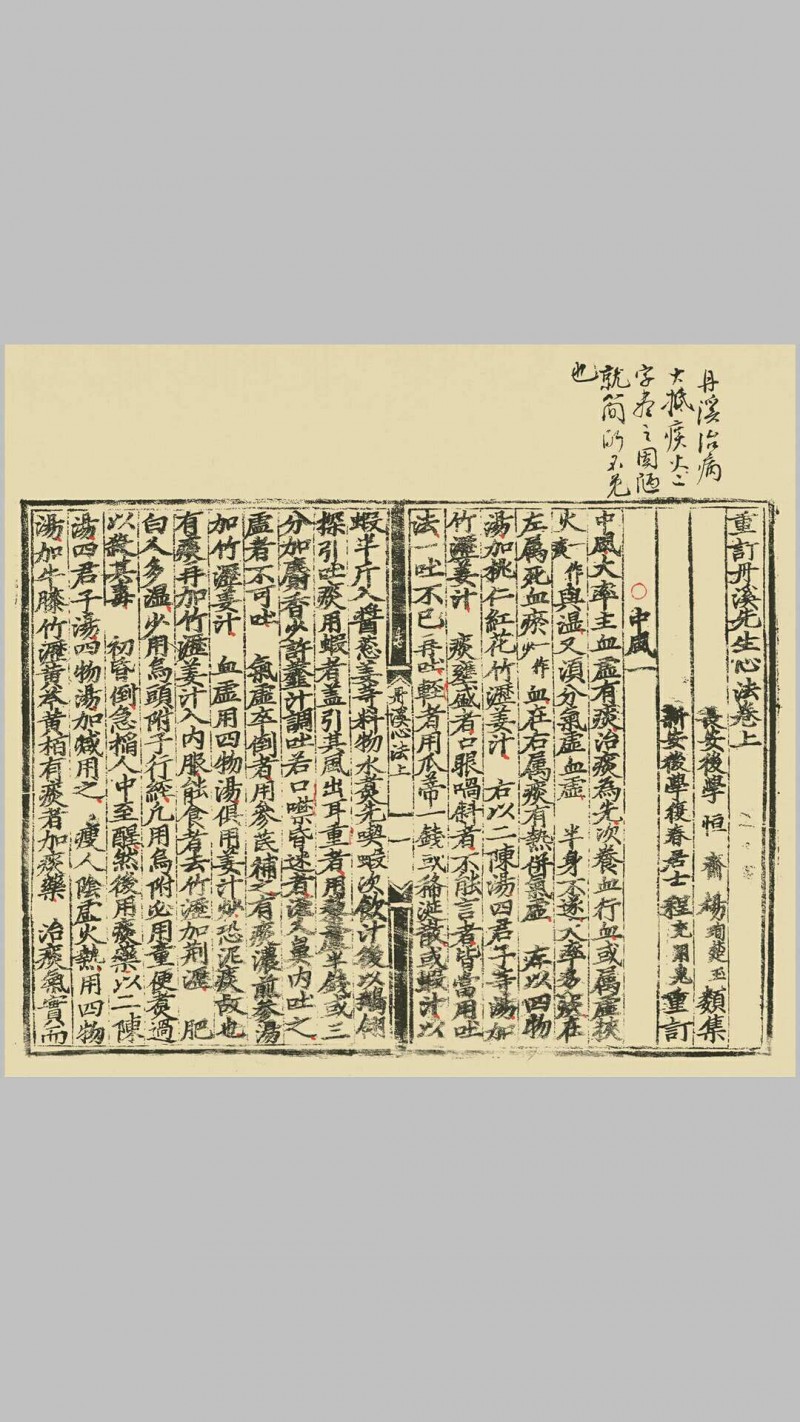 丹溪治病
大抵痰火二
字尽之固陋
就简所不免
也
重訂丹溪先生心法卷上
長安後學恒齋楊珣楚玉類集
新安後學復春居士程充用光重訂
○中風一
中風大率主血虛有痰治痰為先次養血行血或屬虛挾
火一作痰與温又湏分氣虛血虛 半身不遂大率多痰在
左屬死血瘀一作少血在右屬痰有熱併氣虛 左以四物
湯加桃仁紅花竹瀝姜汁 右以二陳湯四君子等湯加
竹瀝姜汁 痰壅盛者口眼喎斜者不能言者皆當用吐
法一吐不已再吐輕者用瓜蒂一錢或稀涎散或蝦汁以
丹溪心法上 一
蝦半斤入醬葱姜等料物水煮先喫蝦次飲汁後以鵝翎
探引吐痰用蝦者盖引其風出耳重者用藜蘆半錢或三
分加麝香少許虀汁調吐若口噤昏迷者灌入鼻內吐之
虛者不可吐 氣虛卒倒者用參芪補之有痰濃煎參湯
加竹瀝姜汁 血虛用四物湯俱用姜汁炒恐泥痰故也
有痰再加竹瀝姜汁入內服能食者去竹瀝加荆瀝 肥
白人多濕少用烏頭附子行經凡用烏附必用童便煮過
以殺其毒 初昏倒急搯人中至醒然後用痰藥以二陳
湯四君子湯四物湯加減用之 瘦人陰虛火熱用四物
湯加牛膝竹瀝黄芩黄栢有痰者加痰藥 治痰氣實而